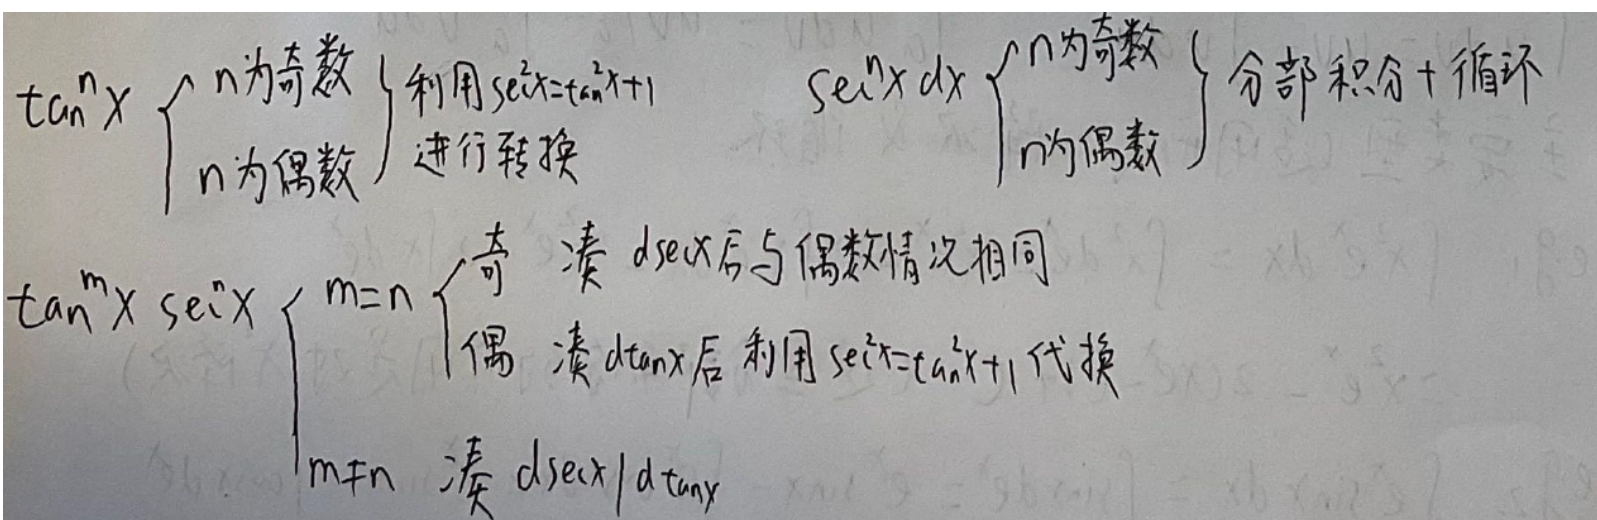 tanⁿx { n为奇数 n为偶数 } 利用sec²x=tan²x+1 进行转换
secⁿx dx { n为奇数 n为偶数 } 分部积分+循环
tanᵐx secⁿx { m=n { 奇 凑 dsecx后与偶数情况相同
偶 凑 dtanx后 利用 sec²x=tan²x+1 代换
m≠n 凑 dsecx/dtanx